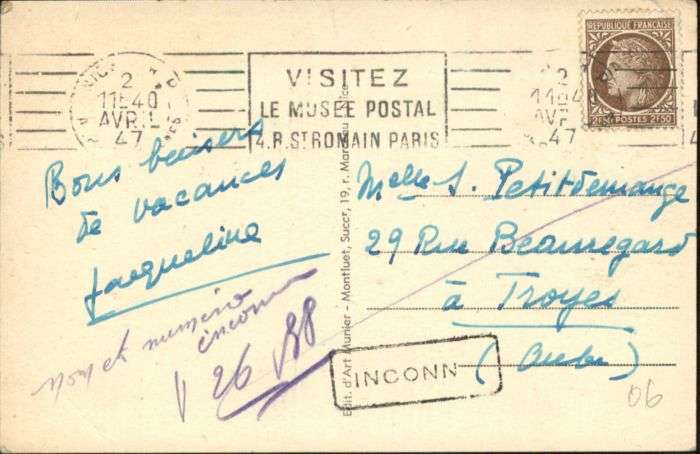 NICE
2
11H40
AVRIL
47
VISITEZ
LE MUSÉE POSTAL
4.R.ST ROMAIN PARIS
2
11H4
AVR
47
REPUBLIQUE FRANÇAISE
2F50 POSTES 2F50
Bons baisers
de vacances
Jacqueline
Melle S. Petitdemange
29 Rue Beauregard
à Troyes
(Aube)
nom et numéro
inconnu
26
INCONN
06
Edit. d'Art Munier - Montluet, Succr, 19, r. Nice